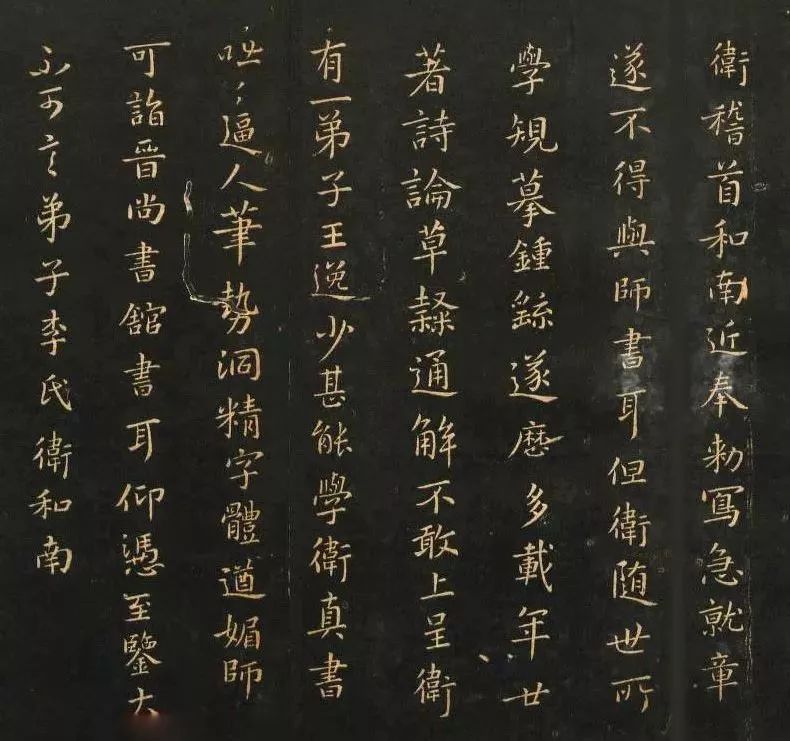 衛稽首和南近奉勑寫急就章
遂不得與師書耳但衛随世所
學規摹鍾繇遂歷多載年廿
著詩論草隸通解不敢上呈衛
有一弟子王逸少甚能學衛真書
咄咄逼人筆勢洞精字體遒媚師
可詣晉尚書館書耳仰憑至鑒大
不可言弟子李氏衛和南